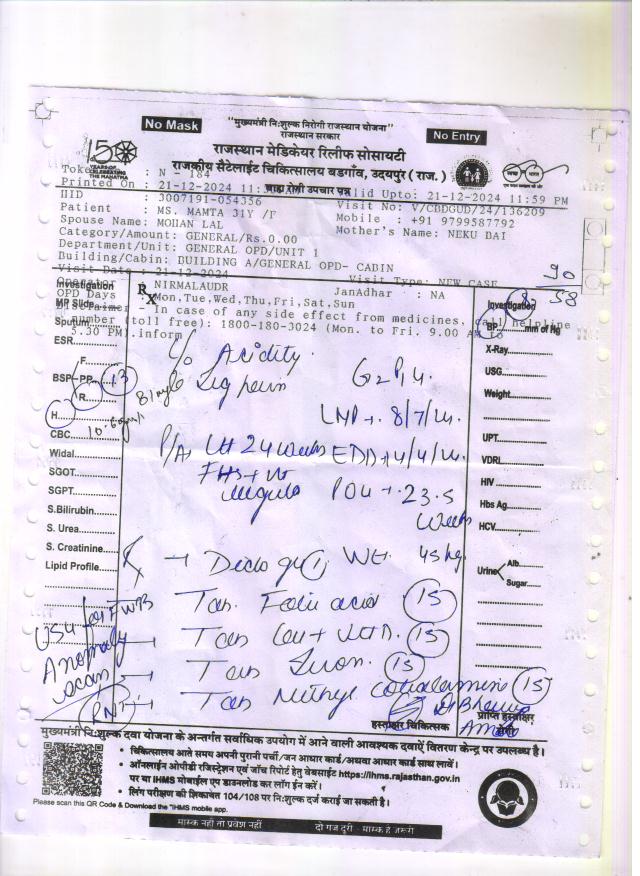 No Mask
"मुख्यमंत्री नि:शुल्क निरोगी राजस्थान योजना"
राजस्थान सरकार
No Entry
राजस्थान मेडिकेयर रिलीफ सोसायटी
राजकीय सैटेलाईट चिकित्सालय बडगाँव, उदयपुर ( राज. )
बाह्य रोगी उपचार पत्र
150
YEARS OF
CELEBRATING
THE MAHATMA
Token : N - 184
Printed On : 21-12-2024 11: Valid Upto: 21-12-2024 11:59 PM
HID : 3007191-054356 Visit No: V/CBDGUD/24/136209
Patient : MS. MAMTA 31Y /F Mobile : +91 9799587792
Spouse Name: MOHAN LAL Mother's Name: NEKU BAI
Category/Amount: GENERAL/Rs.0.00
Department/Unit: GENERAL OPD/UNIT 1
Building/Cabin: BUILDING A/GENERAL OPD- CABIN
Visit Date : 21-12-2024 Visit Type: NEW CASE
NIRMALAUDR JanAdhar : NA
OPD Days Mon,Tue,Wed,Thu,Fri,Sat,Sun
Disclaimer - In case of any side effect from medicines, call helpline
number (toll free): 1800-180-3024 (Mon. to Fri. 9.00 AM to
5.30 PM).inform
90
58
Investigation
MP Slide
Sputum
ESR
F.
BSP PP
R.
H
CBC
Widal
SGOT
SGPT
S.Bilirubin
S. Urea
S. Creatinine
Lipid Profile
Rx
C/o Acidity
Leg pain
G2P1L1
LMP → 8/7/24
P/A Ut 24 weeks EDD → 14/4/24
FHS + nt
regular POG → 23.5
weeks
WT. 45 kg
Tab. Folic acid 15
15
15
Tab Methyl 15
USG for FWB
Anomaly
scan
Investigation
BP mm of Hg
X-Ray
USG
Weight
UPT
VDRL
HIV
Hbs Ag
HCV
Urine Alb.
Sugar
हस्ताक्षर चिकित्सक
प्राप्ति हस्ताक्षर
रोगी
मुख्यमंत्री नि:शुल्क दवा योजना के अन्तर्गत सर्वाधिक उपयोग में आने वाली आवश्यक दवाऐं वितरण केन्द्र पर उपलब्ध है।
• चिकित्सालय आते समय अपनी पुरानी पर्ची/जन आधार कार्ड/अथवा आधार कार्ड साथ लावें।
• ऑनलाईन ओपीडी रजिस्ट्रेशन एवं जाँच रिपोर्ट हेतु वेबसाईट https://ihms.rajasthan.gov.in
पर या IHMS मोबाईल एप डाउनलोड कर लॉग ईन करें।
• लिंग परीक्षण की शिकायत 104/108 पर नि:शुल्क दर्ज कराई जा सकती है।
Please scan this QR Code & Download the "IHMS mobile app.
मास्क नहीं तो प्रवेश नहीं दो गज दूरी - मास्क है जरूरी